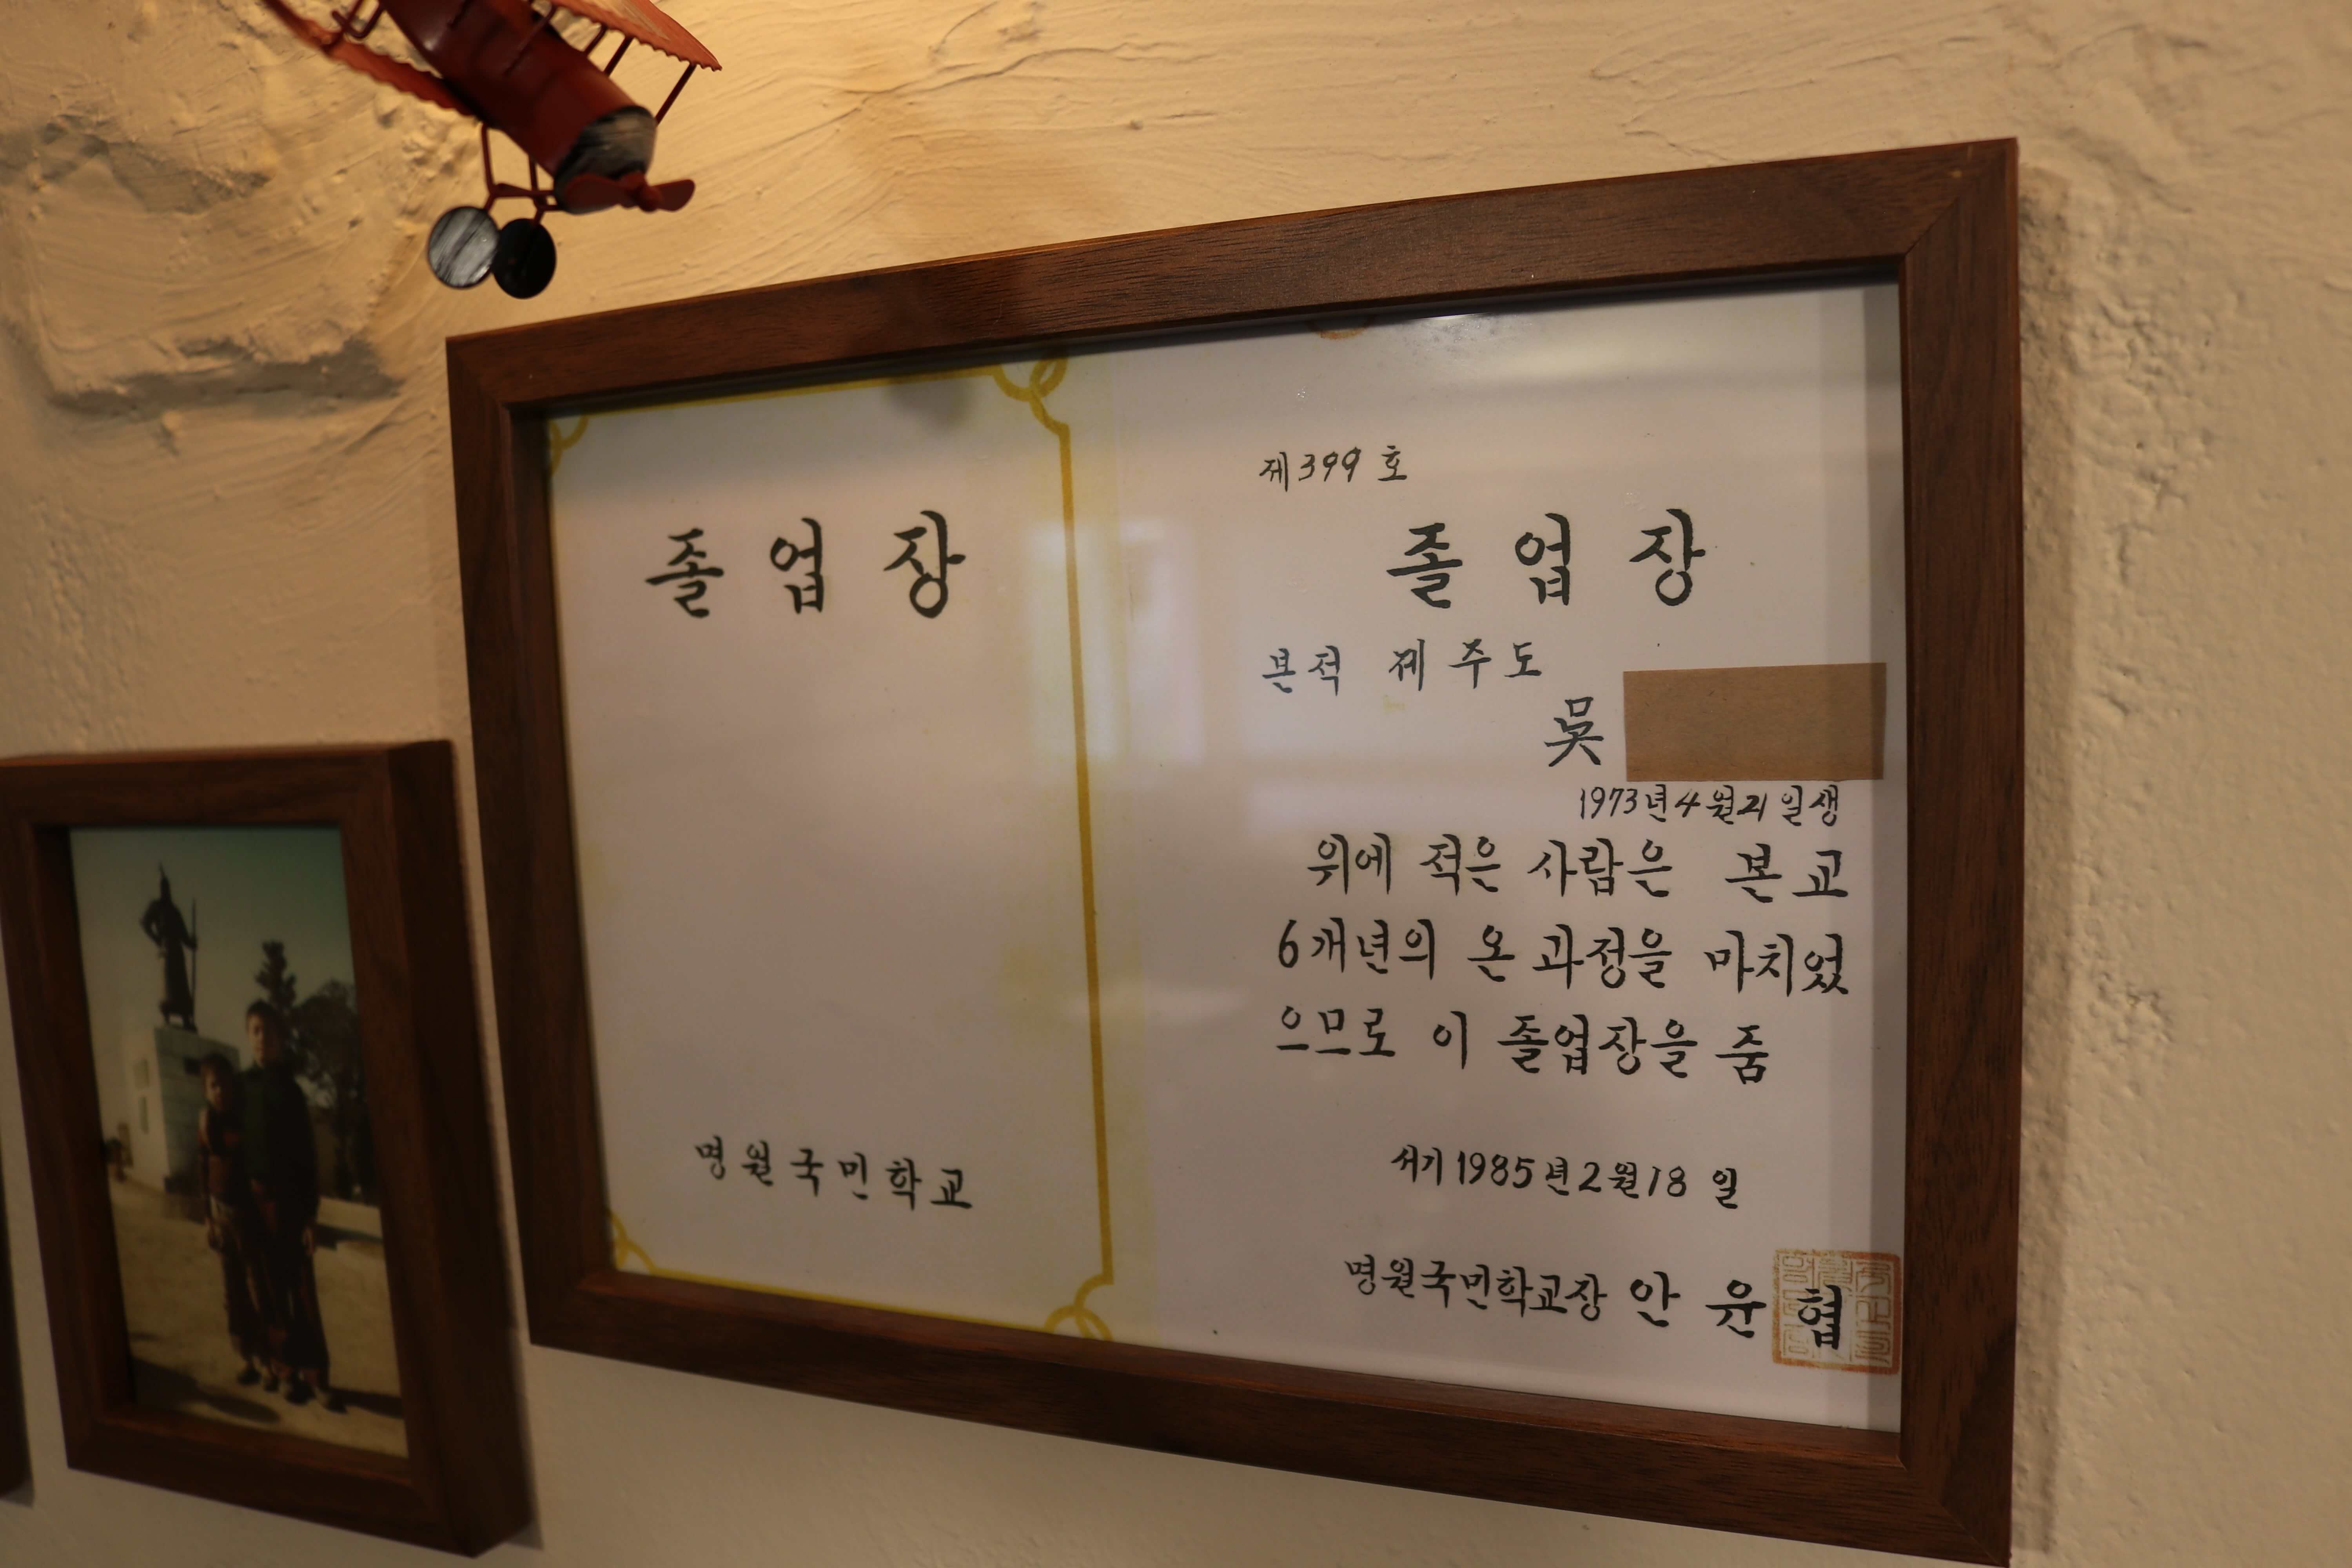 졸업장
명원국민학교
제399호
졸업장
본적 제주도
吳
1973년4월21일생
위에 적은 사람은 본교
6개년의 온 과정을 마치었
으므로 이 졸업장을 줌
서기1985년2월18일
명원국민학교장 안윤협